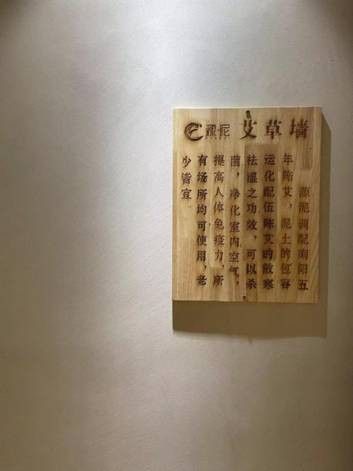 艾草墙
源泥调配南阳五
年陈艾，泥土的包容
运化配伍陈艾的散寒
祛湿之功效，可以杀
菌，净化室内空气，
提高人体免疫力，所
有场所均可使用，老
少皆宜。